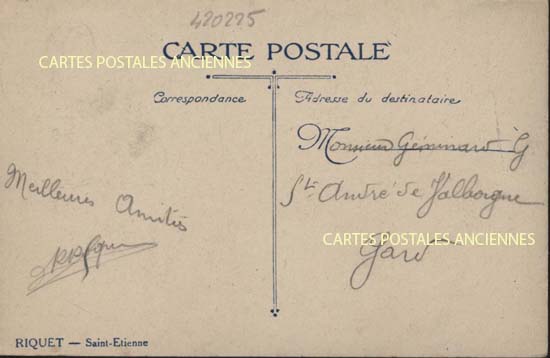 420225
CARTE POSTALE
CARTES POSTALES ANCIENNES
Correspondance
Adresse du destinataire
Monsieur Géminard G
St André de Valborgne
Gard
CARTES POSTALES ANCIENNES
Meilleures Amitiés
RIQUET — Saint-Etienne